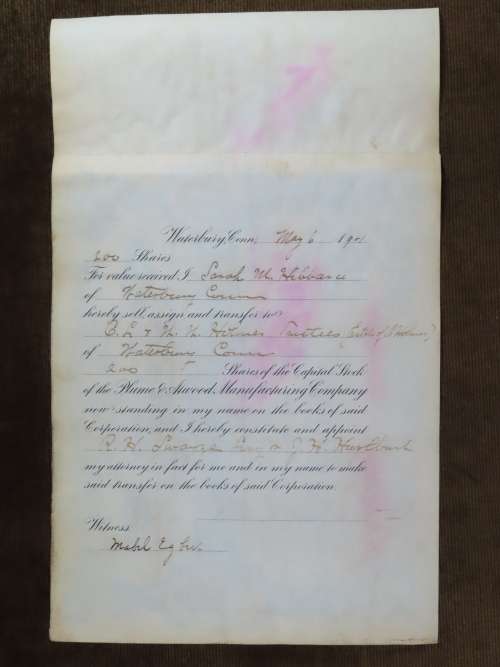 Waterbury, Conn, May 6 190
200 Shares
For value received, I Sarah M.
of Waterbury Conn
hereby sell, assign and transfer to
& Holmes Trustees
of Waterbury Conn
200 Shares of the Capital Stock
of the Plume & Atwood Manufacturing Company
now standing in my name on the books of said
Corporation, and I hereby constitute and appoint
R. H. & J. H. Hurlburt
my attorney in fact for me and in my name to make
said transfer on the books of said Corporation.
Witness
Mabel